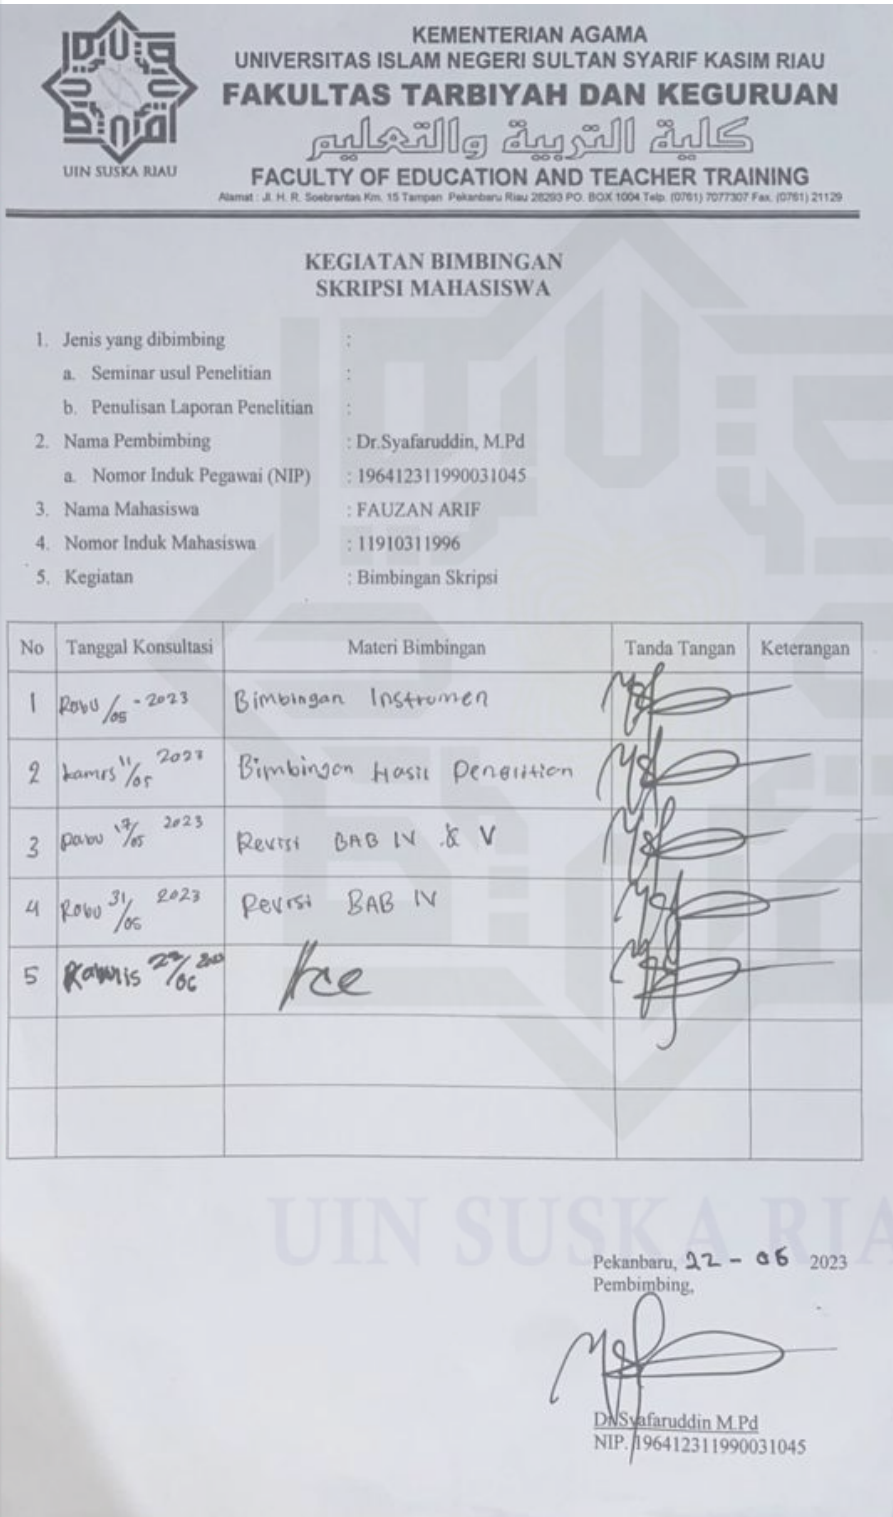 UIN SUSKA RIAU
KEMENTERIAN AGAMA
UNIVERSITAS ISLAM NEGERI SULTAN SYARIF KASIM RIAU
FAKULTAS TARBIYAH DAN KEGURUAN
كلية التربية والتعليم
FACULTY OF EDUCATION AND TEACHER TRAINING
Alamat : Jl. H. R. Soebrantas Km. 15 Tampan Pekanbaru Riau 28293 PO. BOX 1004 Telp. (0761) 7077307 Fax. (0761) 21129
KEGIATAN BIMBINGAN
SKRIPSI MAHASISWA
1. Jenis yang dibimbing :
a. Seminar usul Penelitian :
b. Penulisan Laporan Penelitian :
2. Nama Pembimbing : Dr.Syafaruddin, M.Pd
a. Nomor Induk Pegawai (NIP) : 196412311990031045
3. Nama Mahasiswa : FAUZAN ARIF
4. Nomor Induk Mahasiswa : 11910311996
5. Kegiatan : Bimbingan Skripsi
No Tanggal Konsultasi Materi Bimbingan Tanda Tangan Keterangan
1 Rabu /05 - 2023 Bimbingan Instrumen
2 kamis 11/05 2023 Bimbingan Hasil Penelitian
3 Rabu 17/05 2023 Revisi BAB IV & V
4 Rabu 31/05 2023 Revisi BAB IV
5 Kamis 22/06 Acc
UIN SUSKA RIA
Pekanbaru, 22 - 06 2023
Pembimbing,
Dr.Syafaruddin M.Pd
NIP. 196412311990031045